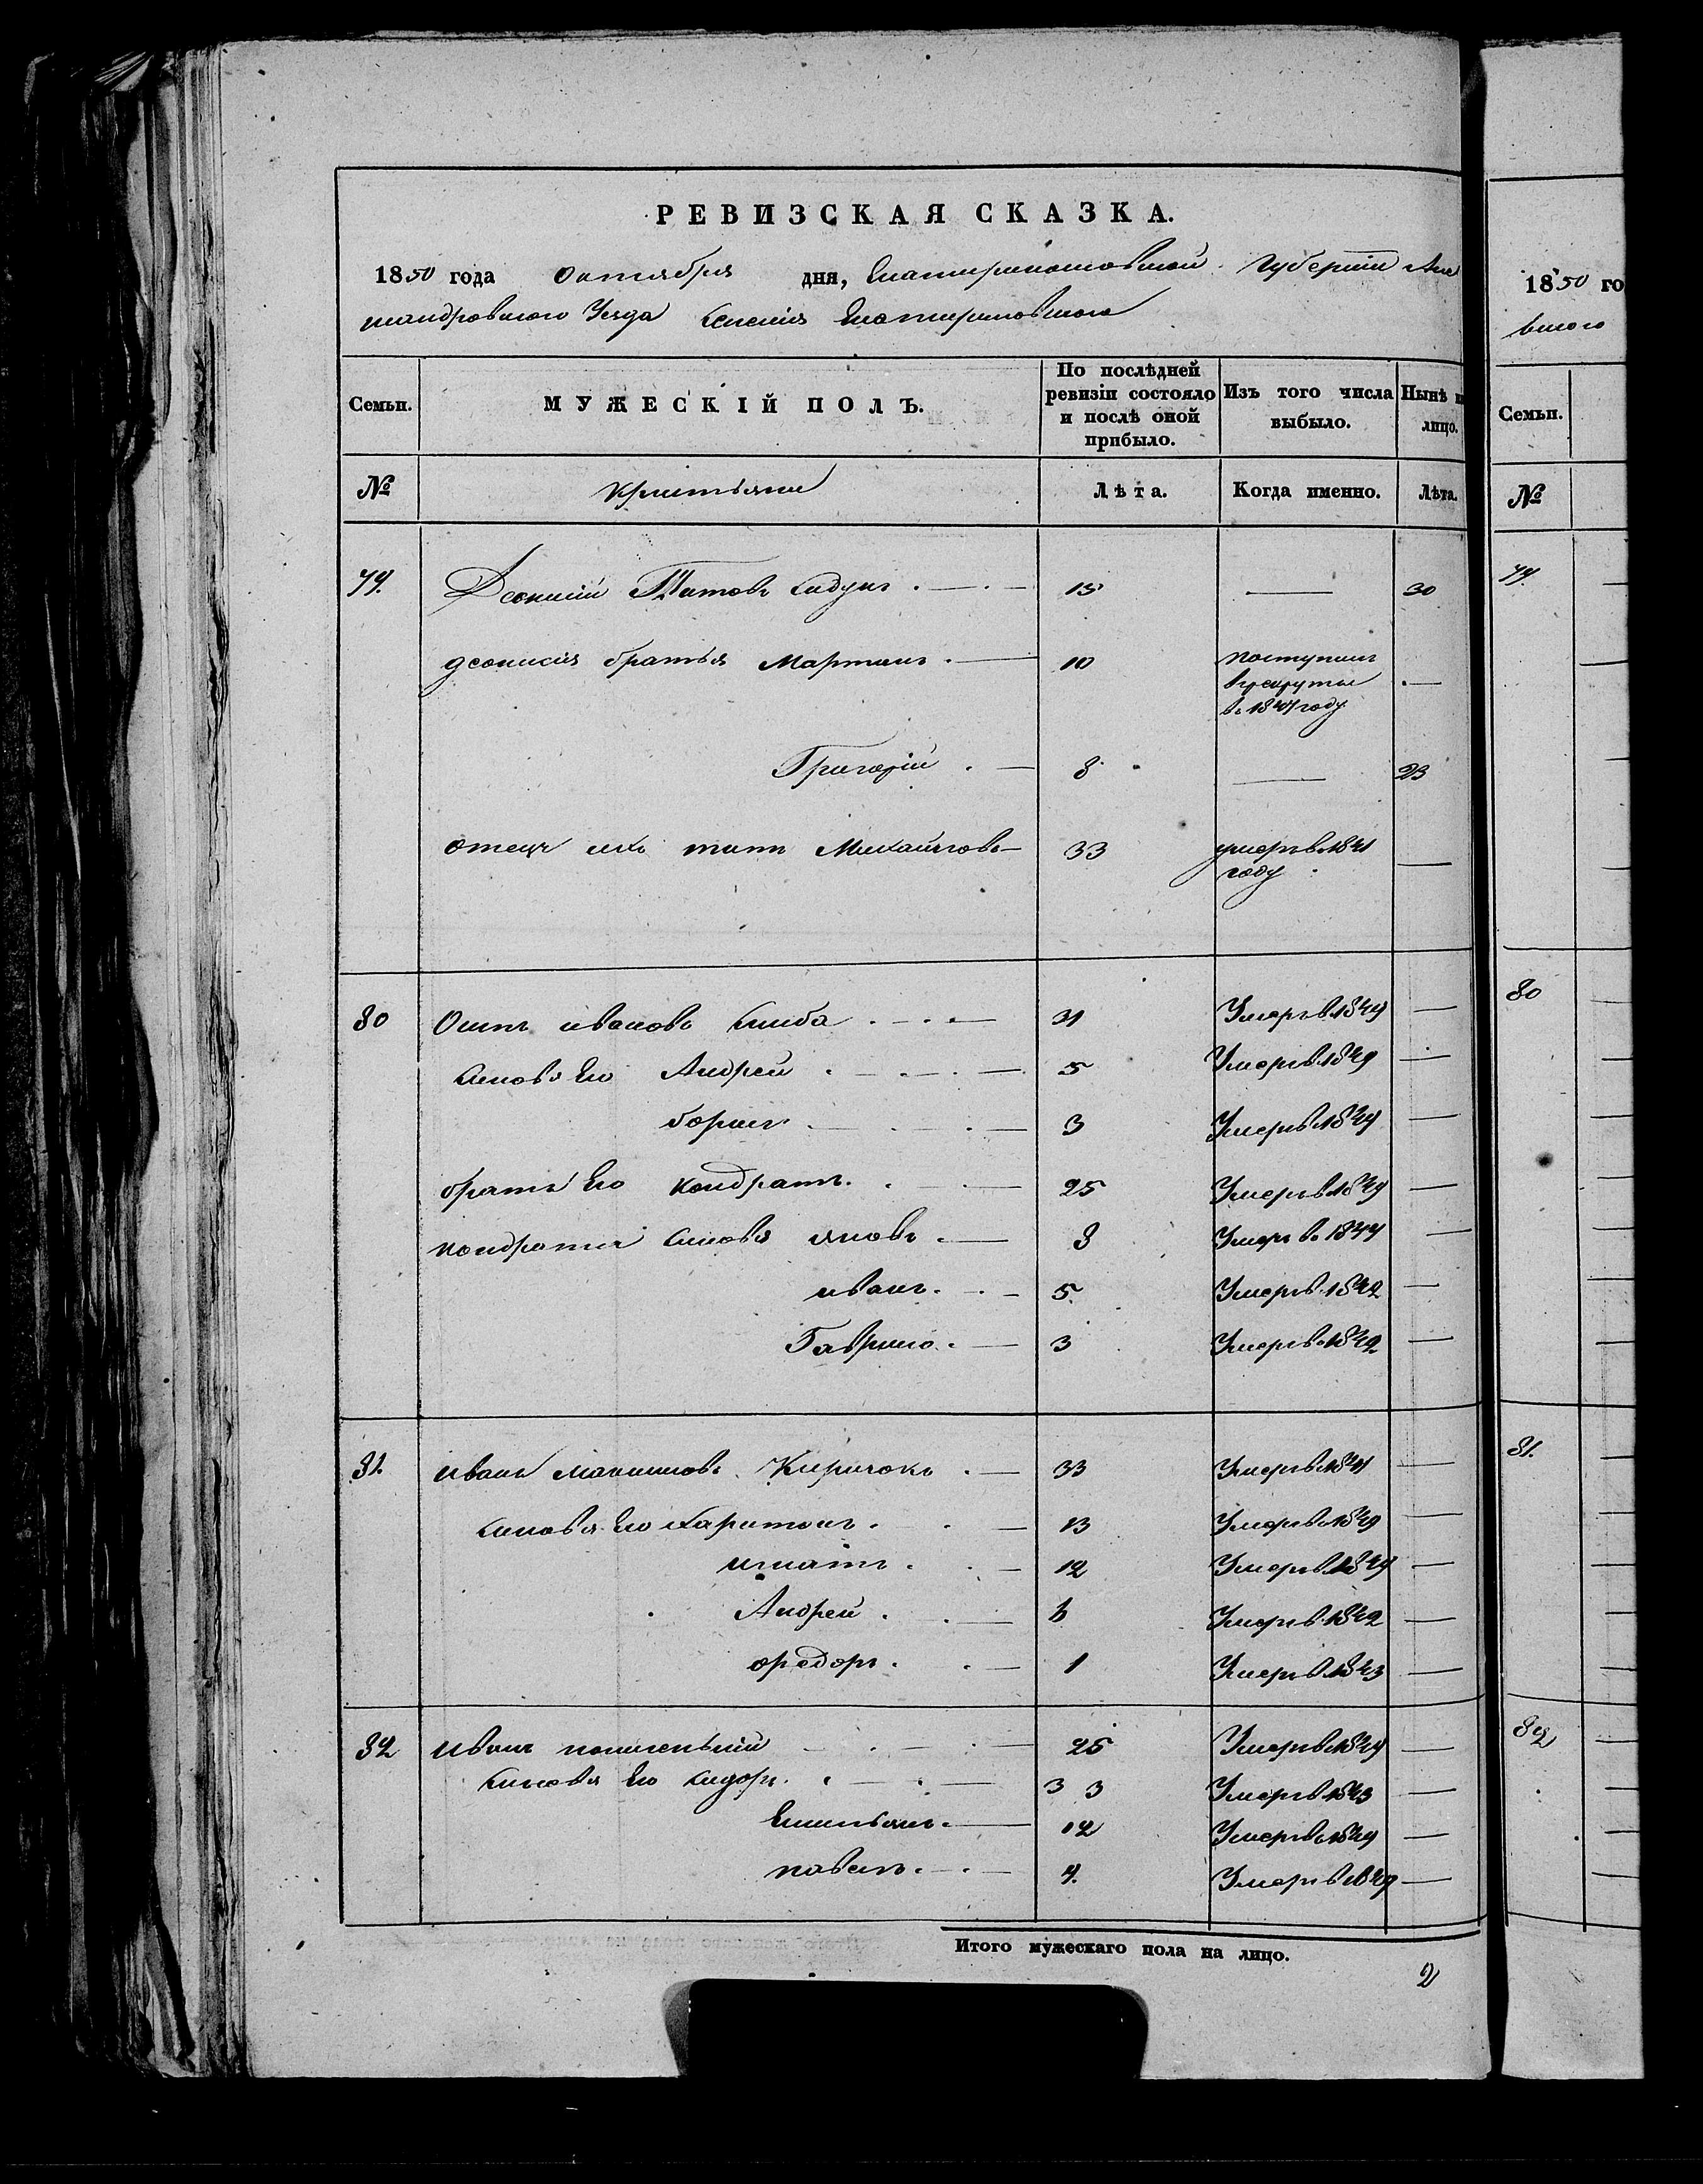 РЕВИЗСКАЯ СКАЗКА.
1850 года Октября дня, Екатеринославской Губерніи Алек
сандровского Уезда Селенія Екатериновского
Семьи. МУЖЕСКІЙ ПОЛЪ. По послѣдней ревизіи состояло и послѣ оной прибыло. Изъ того числа выбыло. Нынѣ н лицо.
№ Крестьяне Лѣта. Когда именно. Лѣта.
79. Деонисій Титовъ 15 — 30
деонисія братья Мартинъ 10 поступилъ
в рекруты —
въ 1847 году
Григорій 8 — 23
отецъ ихъ титъ Михайловъ 33 умеръ в 1841
году —
80 Осипъ ивановъ 31 Умеръ в 1849 —
сыновя Его Андрей 5 Умеръ в 1849 —
борисъ 3 Умеръ в 1849 —
братъ Его кондратъ 25 Умеръ в 1849 —
кондратия сыновя яковъ 8 Умеръ въ 1844 —
иванъ 5. Умеръ в 1842 —
Гаврило 3 Умеръ в 1842 —
81. иванъ максимовъ Киричокъ 33 Умеръ в 1841 —
сыновя Его харитонъ 13 Умеръ в 1849 —
игнатъ 12 Умеръ в 1849 —
Андрей 6 Умеръ в 1842 —
федоръ 1 Умеръ в 1843 —
82 иванъ 25 Умеръ в 1849 —
сыновя Его сидоръ 3 3 Умеръ в 1843 —
Емельянъ 12 Умеръ в 1849 —
павелъ 4. Умеръ в 1849 —
Итого мужескаго пола на лицо.
2
1850 го
вского
Семьи.
№
79.
80
81.
82